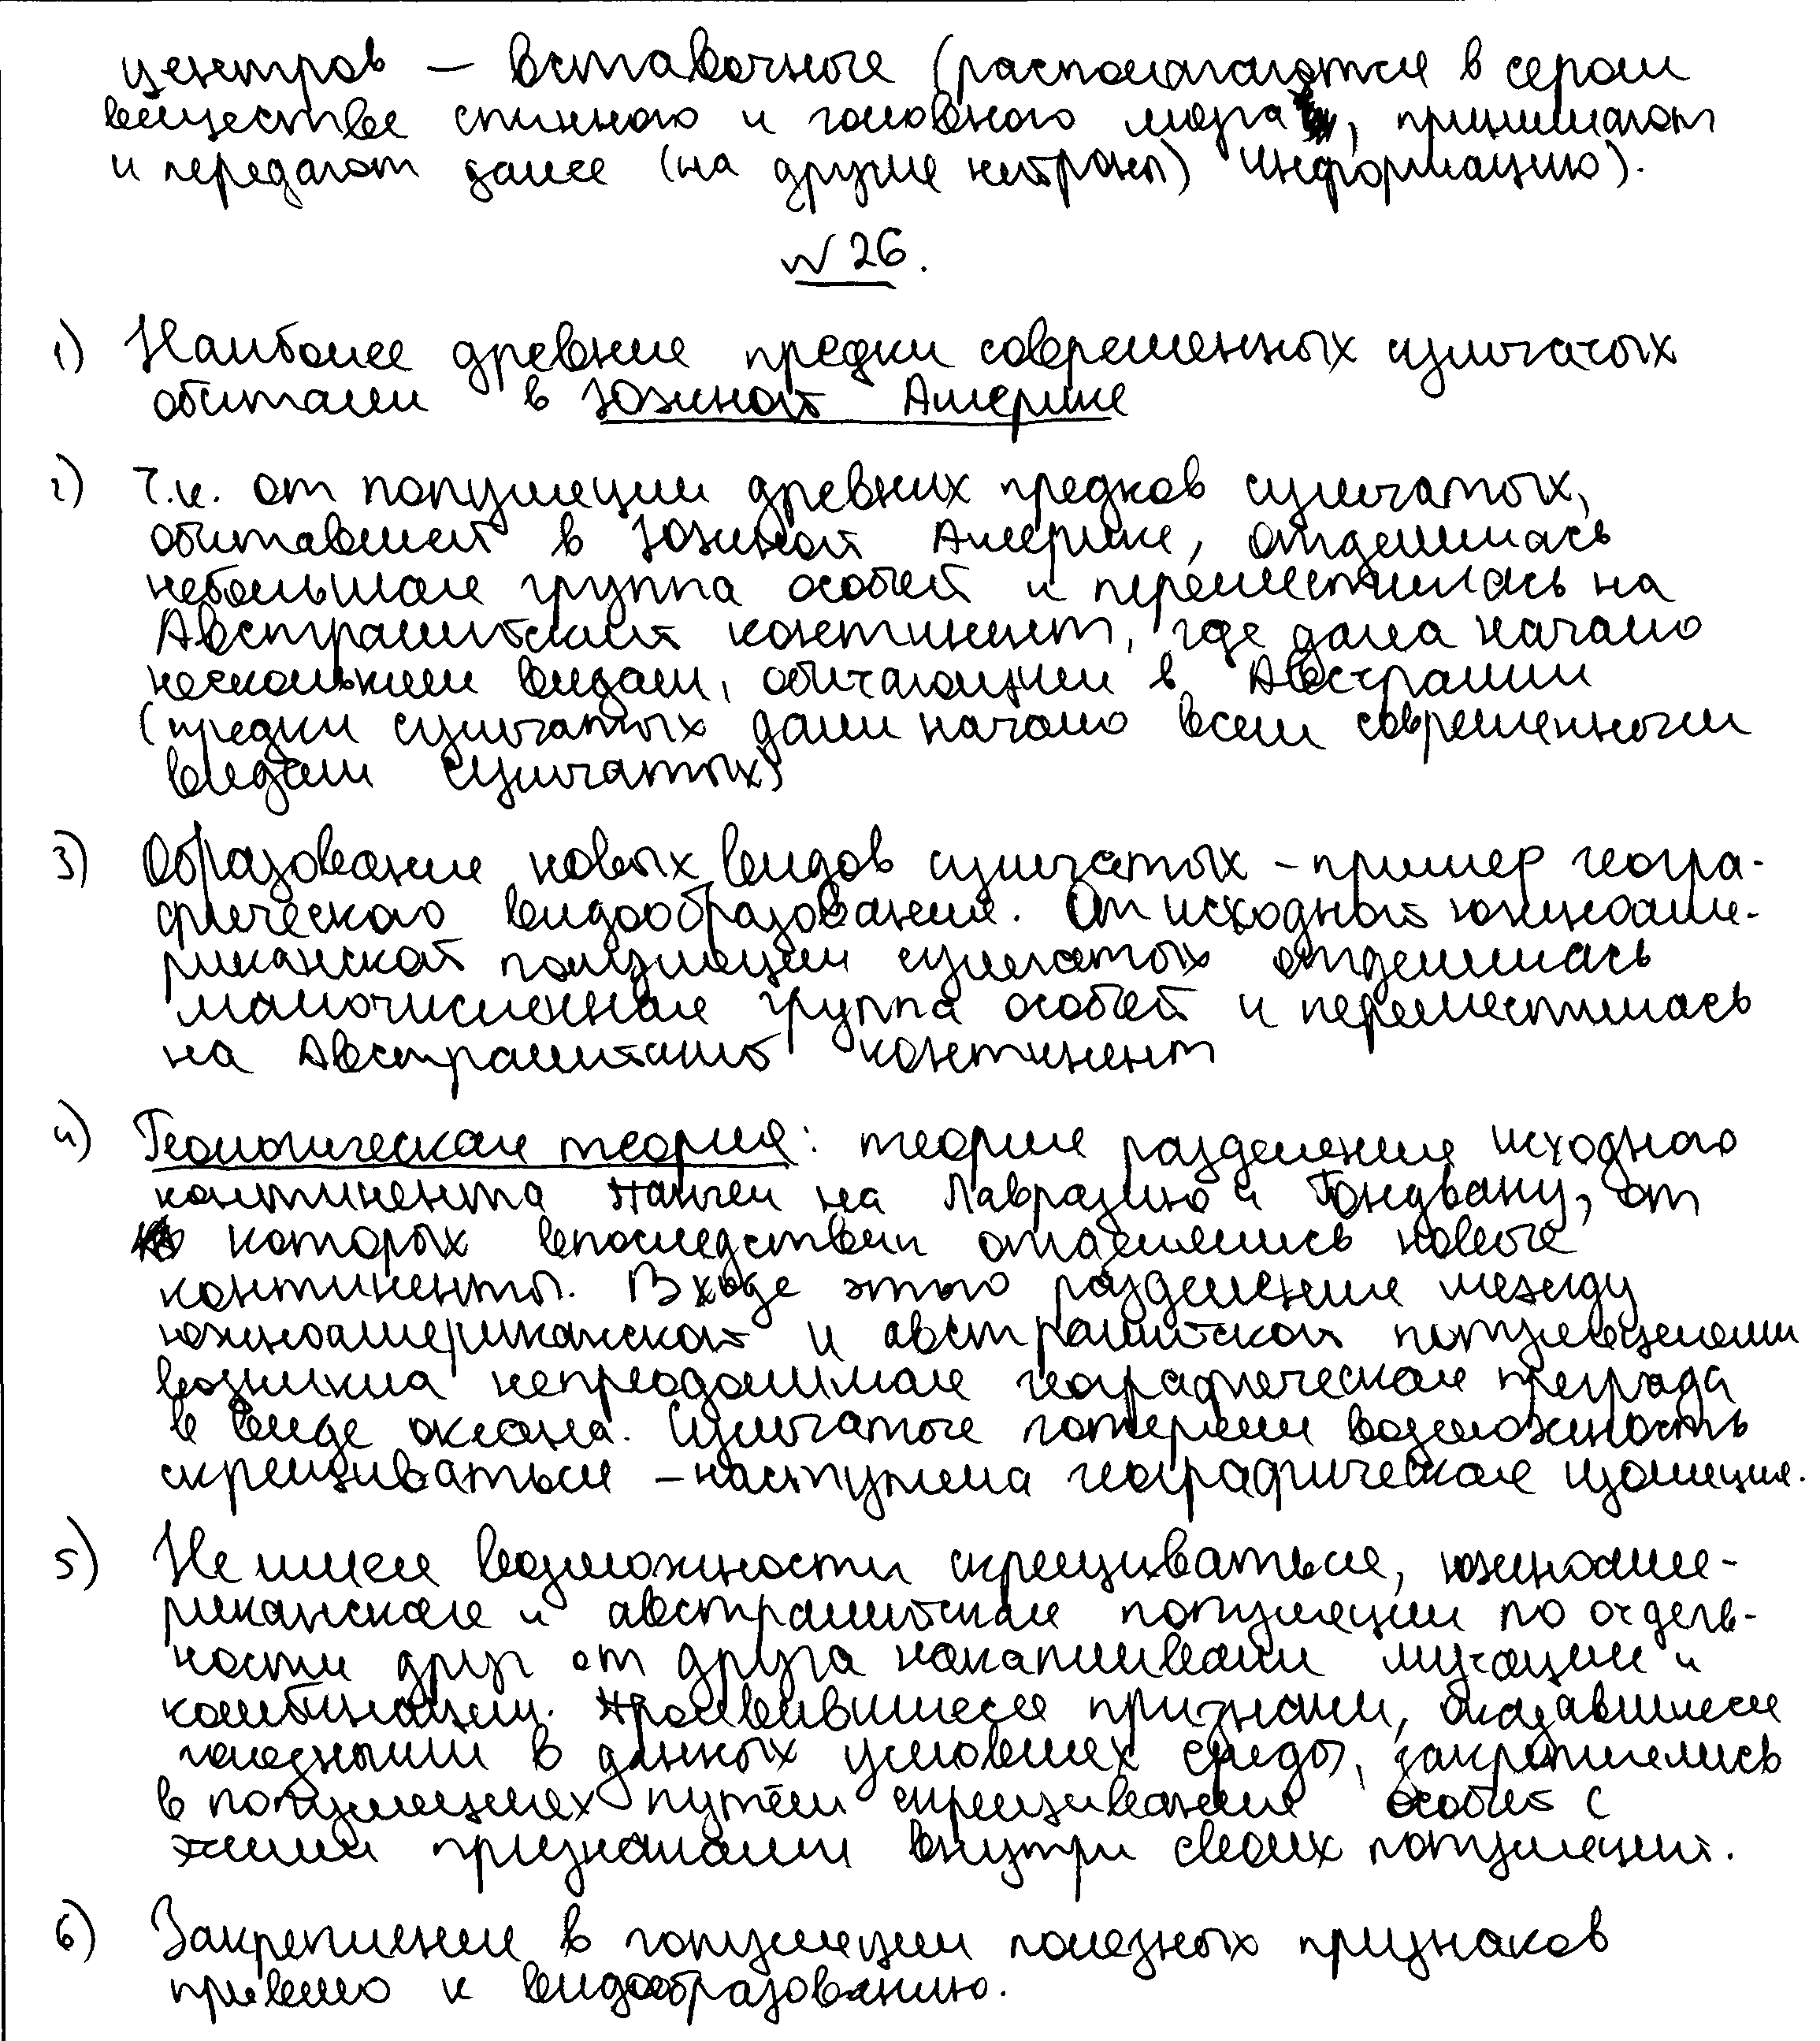 центров – вставочные (располагаются в сером
веществе спинного и головного мозга, принимают
и передают далее (на другие нейроны) информацию).
№ 26.
1) Наиболее древние предки современных сумчатых
обитали в Южной Америке
2) Т.к. от популяции древних предков сумчатых,
обитавшей в Южной Америке, отделилась
небольшая группа особей и переместилась на
Австралийский континент, где дала начало
нескольким видам, обитающим в Австралии
(предки сумчатых дали начало всем современным
видам сумчатых)
3) Образование новых видов сумчатых – пример геогра-
фического видообразования. От исходной южноаме-
риканской популяции сумчатых отделилась
малочисленная группа особей и переместилась
на Австралийский континент
4) Геологическая теория: теория разделения исходного
континента Пангеи на Лавразию и Гондвану, от
которых впоследствии отделились новые
континенты. В ходе этого разделения между
южноамериканской и австралийской популяциями
возникла непреодолимая географическая преграда
в виде океана. Сумчатые потеряли возможность
скрещиваться – наступила географическая изоляция.
5) Не имея возможности скрещиваться, южноаме-
риканская и австралийская популяции по отдель-
ности друг от друга накапливали мутации и
комбинации. Проявившиеся признаки, оказавшиеся
полезными в данных условиях среды, закрепились
в популяциях путём скрещивания особей с
этими признаками внутри своих популяций.
6) Закрепление в популяции полезных признаков
привело к видообразованию.